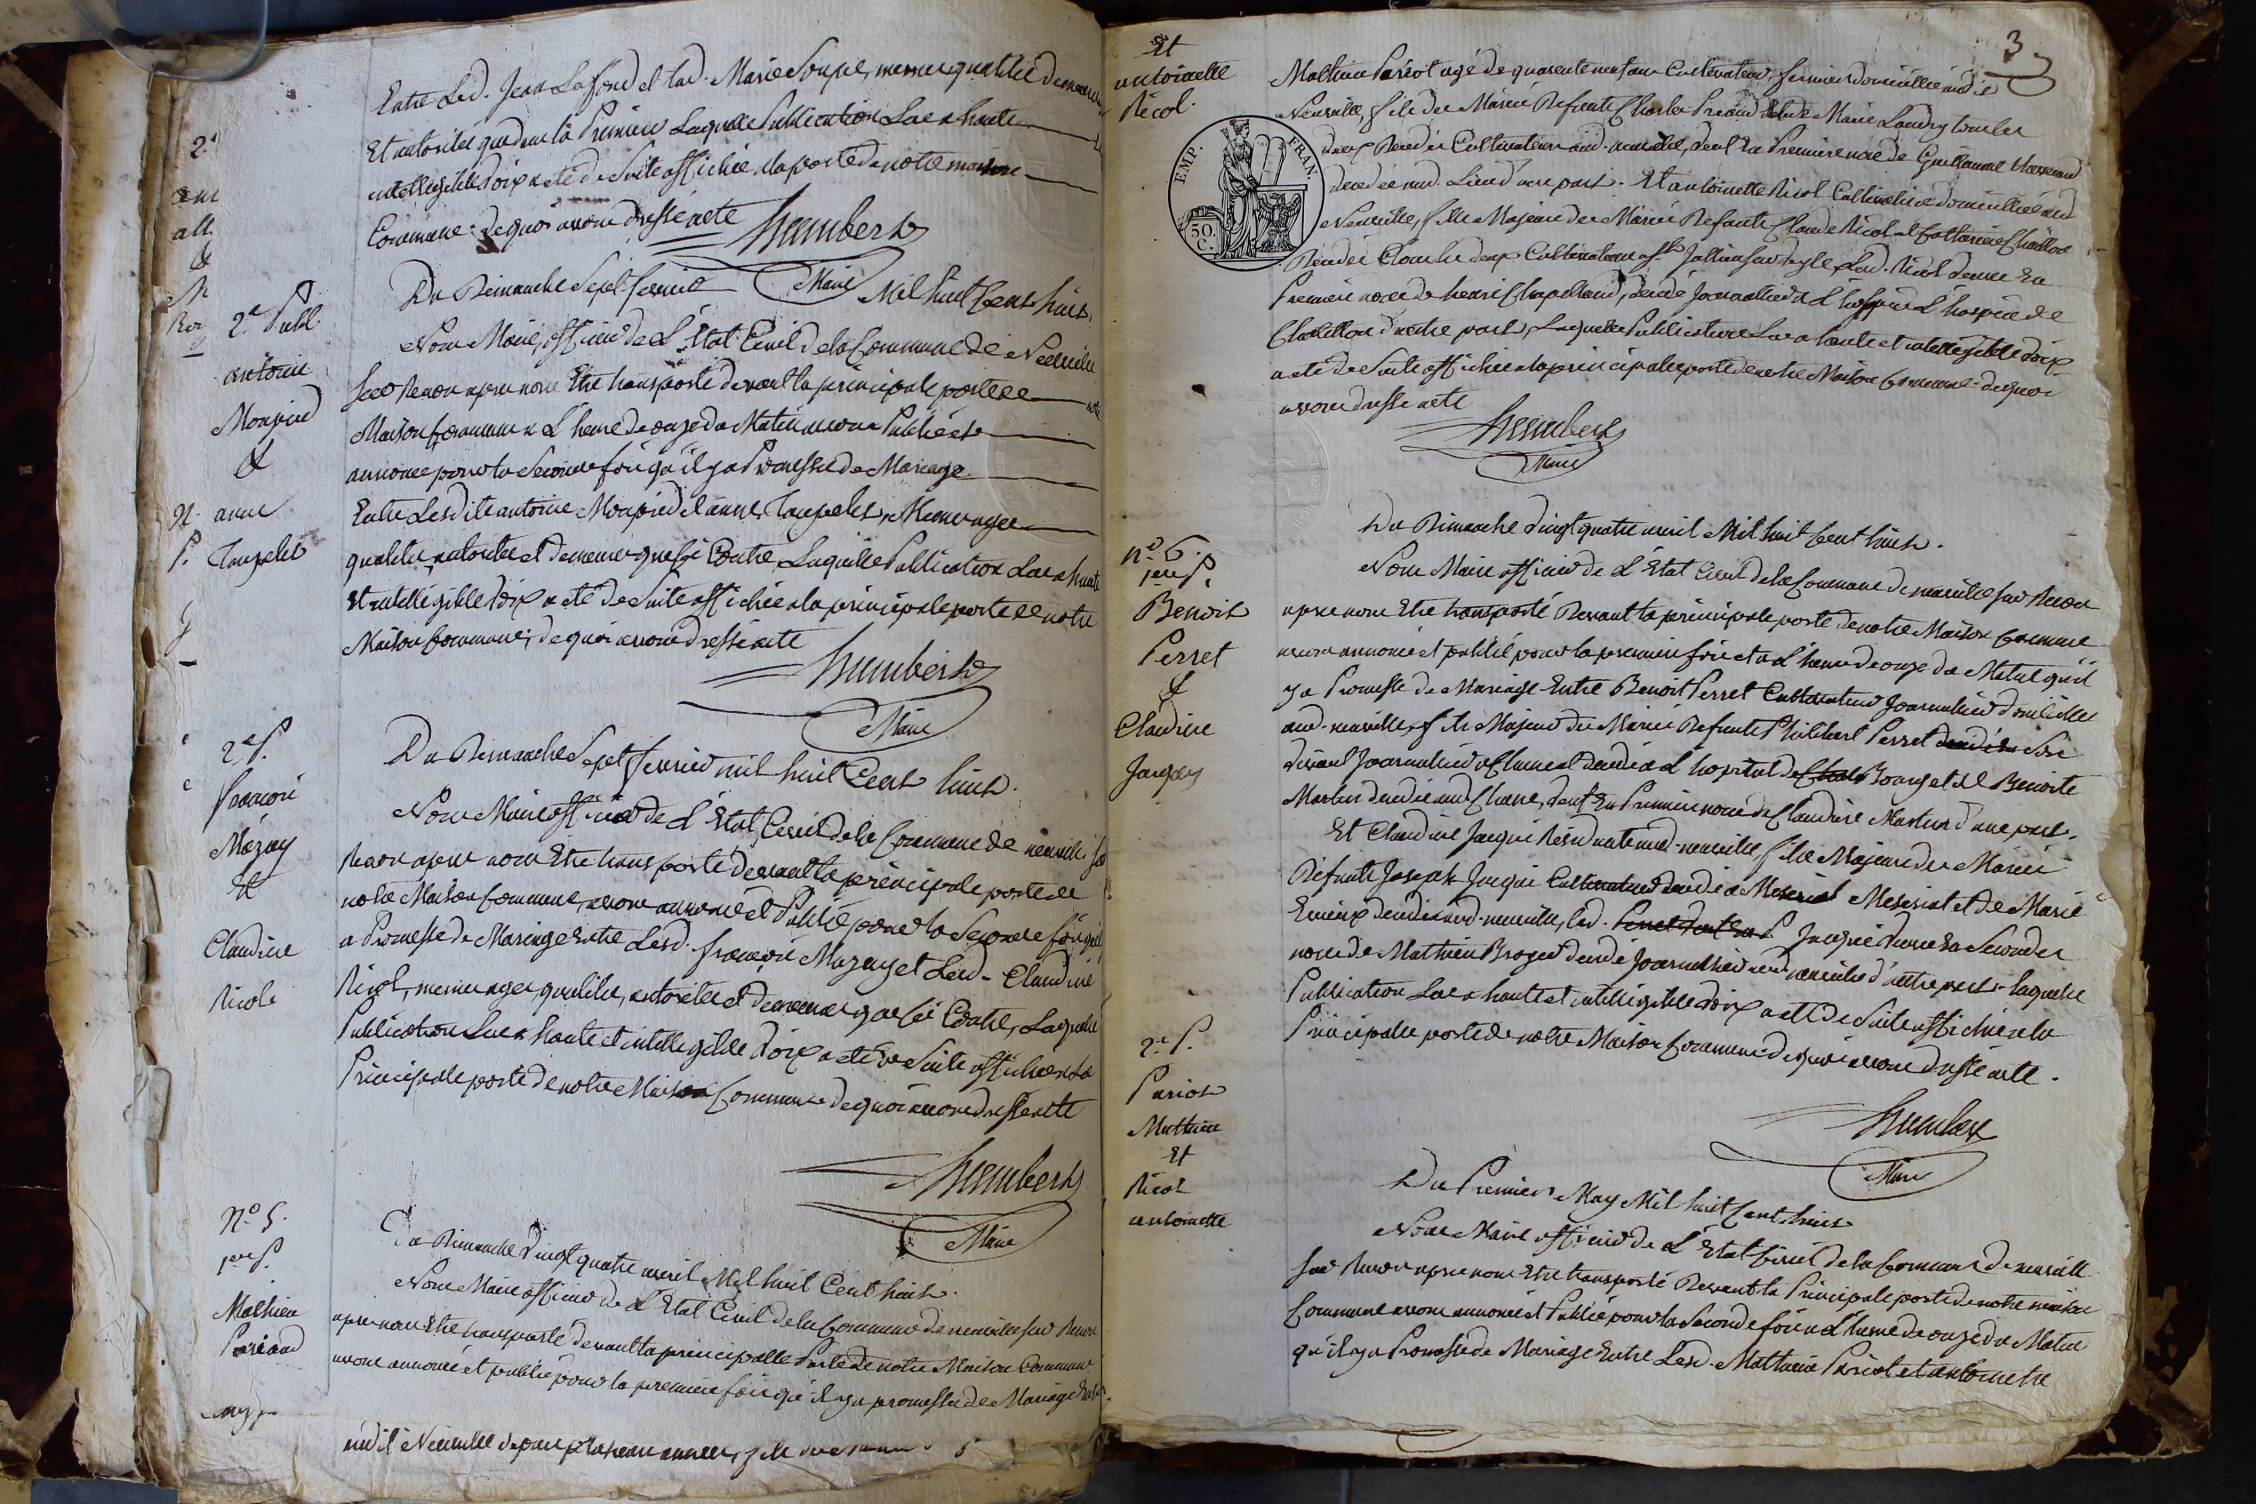 Entre Led. Jean Lafond et lad. Marie Soupe, mesmes qualités demeures
Et autorités que dans la Premiere Laquelle Publication Lue a haute
intelligible voix a été de Suite affichée a la porte de notre maison
Commune. de quoi avons dressé acte
Humbert
Maire
2e Publ
antoine
Monpied
&
anne
Taupelet
Du Dimanche Sept fevrier Mil huit Cent huit.
Nous Maire, officier de L'Etat Civil de la Commune de Neuville
Sur Renon apres nous Etre transporté devant la principale porte de notre
Maison Commune a L'heure de onze du Matin avons Publié et
annoncé pour la Seconde fois qu'il y a Promesse de Mariage
Entre Lesdits antoine Monpied et anne Taupelet, Memes ages
qualités, autorités et demeures que ci Contre, Laquelle Publication Lue a haute
Et intelligible Voix a été de Suite affichée a la principale porte de notre
Maison Commune, de quoi avons dressé acte
Humbert
Maire
2e P.
françois
Mazuy
Et
Claudine
Nicole
Du Dimanche Sept fevrier mil huit Cent huit.
Nous Maire officier de L'Etat Civil de la Commune de neuville Sur
Renon apres nous Etre transporté devant la principale porte de
notre Maison Commune, avons annoncé et Publié pour la Seconde fois qu'il
a Promesse de Mariage Entre Lesd. françois Mazuy et Lad. Claudine
Nicol, memes ages, qualités, autorités et demeures que ci Contre, Laquelle
Publication Lue a haute et intelligible Voix a été de Suite affichée a La
Principale porte de notre Maison Commune de quoi avons dressé acte
Humbert
Maire
No 5.
1ere P.
Mathieu
Pariaud
Du Dimanche vingt quatre avril Mil huit Cent huit.
Nous Maire officier de L'Etat Civil de la Commune de neuville sur Renon
apres nous Etre transporté devant la principalle Porte de notre Maison Commune
avons annoncé et publié pour la premiere fois qu'il y a promesse de Mariage Entre
aud. Neuville depuis plusieurs années, fils
3
Et
antoinette
Nicol.
EMP. FRAN.
50.
C.
Mathieu Pariot agé de quarente neuf ans Cultivateur, fermier domicilié aud.
Neuville, fils de Mariés Defunts Charles Pariaud et de Marie Laudry tous les
deux Decedés Cultivateurs aud. neuville, veuf En Premiere noce de
decedée aud. Lieu d'une part. Et antoinette Nicol Cultivatrice domiciliée aud
Neuville, fille Majeure de Mariés Defunts Claude Nicol et Catherine Chaillon
Decedés tous les deux Cultivateurs a St Jullien sur Veyle Lad. Nicol veuve En
Premiere noce de henri Chapelland, decedé Journallier a L'hospice de
Chatillon d'autre part, Laquelle Publication Lue a haute et intelligible Voix
a été de Suite affichée a la principale porte de notre Maison Commune. de quoi
avons dressé acte
Humbert
Maire
No 6.
1ere P.
Benoit
Perret
&
Claudine
Jacquy
Du Dimanche vingt quatre avril Mil huit Cent huit.
Nous Maire officier de L'Etat Civil de la Commune de neuville sur Renon
apres nous Etre transporté Devant la principale porte de notre Maison Commune
avons annoncé et publié pour la premiere fois et a L'heure de onze du Matin qu'il
y a Promesse de Mariage Entre Benoit Perret Cultivateur Journalier domicilié
aud. neuville, fils Majeur de Mariés Defunts Philibert Perret
vivant Journalier a Chanes et decedé a L'hopital de Bourg et de Benoite
Martin decedée aud Chanes, veuf En Premiere noce de Claudine Martin d'une part.
Et Claudine Jacqui Residente aud. neuville, fille Majeure de Mariés
Defunts Joseph Jacqui Cultivateur decedé a Mezeriat et de Marie
decedée aud. neuville, Lad. Jacqui Veuve En Secondes
noces de Mathieu Broyer decedé Journalier aud neuville d'autre part. Laquelle
Publication Lue a haute et intelligible Voix a été de Suite affichée a la
Principalle porte de notre Maison Commune de quoi avons dressé acte.
Humbert
Maire
2e P.
Pariot
Mathieu
Et
Nicol
antoinette
Du Premier May Mil huit Cent huit
Nous Maire officier de L'Etat Civil de la Commune de neuville
sur Renon apres nous Etre transporté Devant la Principale porte de notre maison
Commune avons annoncé et Publié pour la Seconde fois a L'heure de onze du Matin
qu'il y a Promesse de Mariage Entre Lesd. Mathieu Pariot et antoinette